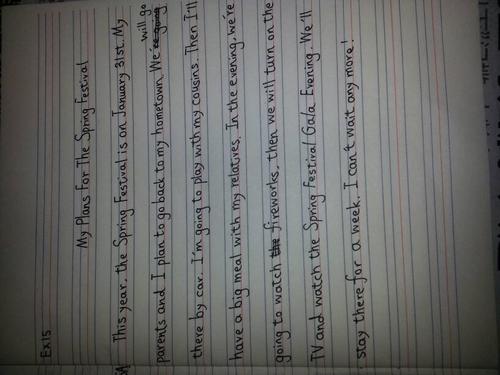 Ex15
My Plans For The Spring Festival
This year, the Spring Festival is on January 31st. My
parents and I plan to go back to my hometown. We will go
there by car. I'm going to play with my cousins. Then I'll
have a big meal with my relatives. In the evening, we're
going to watch the fireworks, then we will turn on the
TV and watch the Spring Festival Gala Evening. We'll
stay there for a week. I can't wait any more!